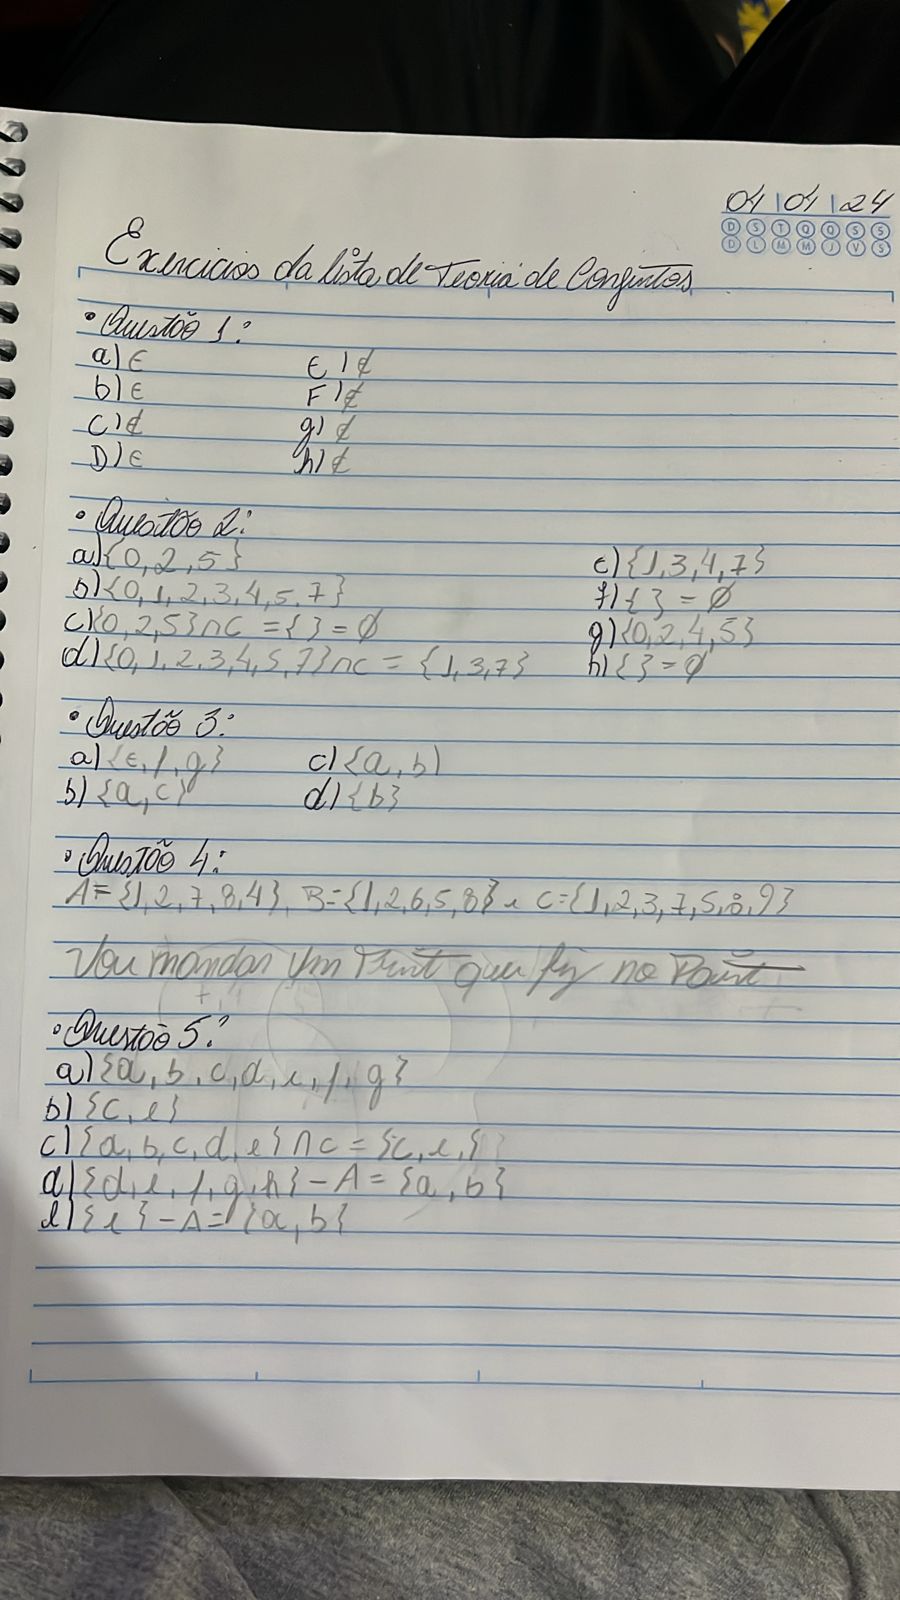 04 04 24
D S T Q Q S S
D L M M J V S
Exercicios da lista de Teoria de Conjuntos
• Questão 1:
a) ∈ E) ∉
b) ∈ F) ∉
C) ∉ g) ∉
D) ∈ h) ∉
• Questão 2:
a) {0, 2, 5} e) {1, 3, 4, 7}
b) {0, 1, 2, 3, 4, 5, 7} f) { } = ∅
c) {0, 2, 5} ∩ C = { } = ∅ g) {0, 2, 4, 5}
d) {0, 1, 2, 3, 4, 5, 7} ∩ C = {1, 3, 7} h) { } = ∅
• Questão 3:
a) {e, f, g} c) {a, b)
b) {a, c} d) {b}
• Questão 4:
A = {1, 2, 7, 8, 4}, B = {1, 2, 6, 5, 8} e C = {1, 2, 3, 7, 5, 8, 9}
Vou mandar um Print que fiz no Paint
• Questão 5:
a) {a, b, c, d, e, f, g}
b) {c, e}
c) {a, b, c, d, e} ∩ C = {c, e, }
d) {d, e, f, g, h} - A = {a, b}
e) {e} - A = {a, b}